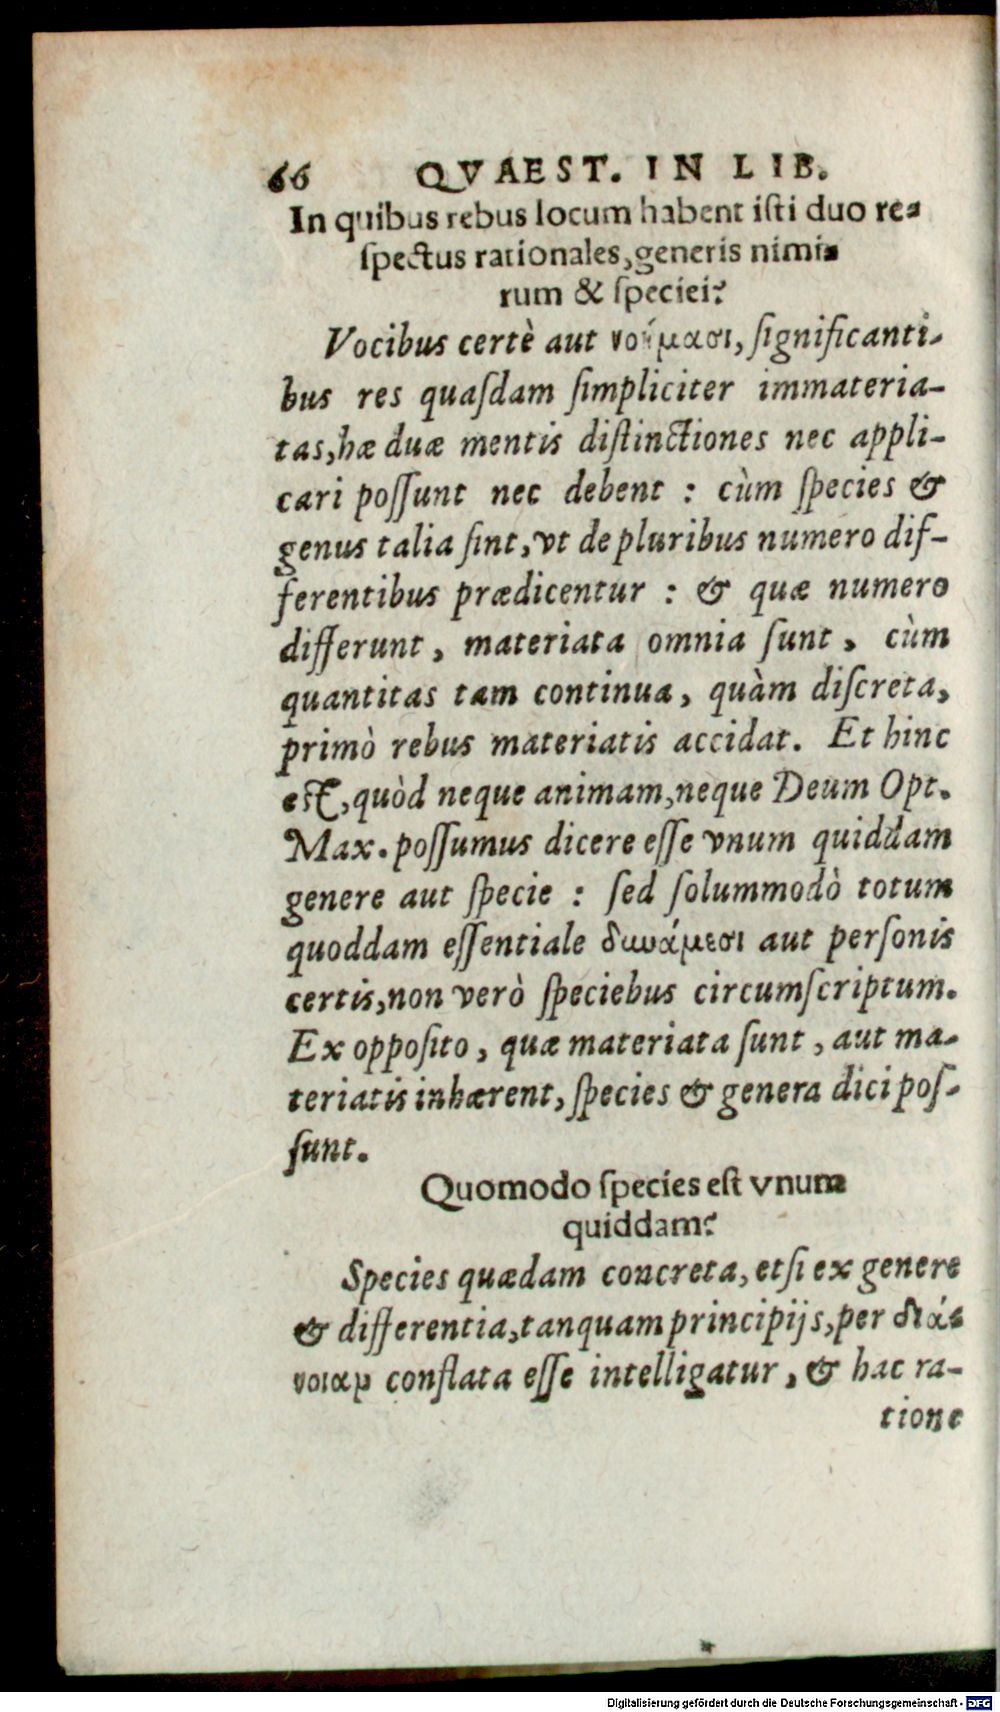 66 QVAEST. IN LIB.
In quibus rebus locum habent iſti duo re-
ſpectus rationales, generis nimi-
rum & ſpeciei?
Vocibus certè aut νοήμασι, ſignificanti-
bus res quaſdam ſimpliciter immateria-
tas, hæ duæ mentis diſtinctiones nec appli-
cari poſſunt nec debent : cùm ſpecies &
genus talia ſint, vt de pluribus numero dif-
ferentibus prædicentur : & quæ numero
differunt, materiata omnia ſunt, cùm
quantitas tam continua, quàm diſcreta,
primò rebus materiatis accidat. Et hinc
eſt, quòd neque animam, neque Deum Opt.
Max. poſſumus dicere eſſe vnum quiddam
genere aut ſpecie : ſed ſolummodò totum
quoddam eſſentiale δυνάμεσι aut perſonis
certis, non verò ſpeciebus circumſcriptum.
Ex oppoſito, quæ materiata ſunt, aut ma-
teriatis inhærent, ſpecies & genera dici poſ-
ſunt.
Quomodo ſpecies eſt vnum
quiddam?
Species quædam concreta, etſi ex genere
& differentia, tanquam principijs, per διά-
νοιαν conflata eſſe intelligatur, & hac ra-
tione
Digitalisierung gefördert durch die Deutsche Forschungsgemeinschaft - DFG